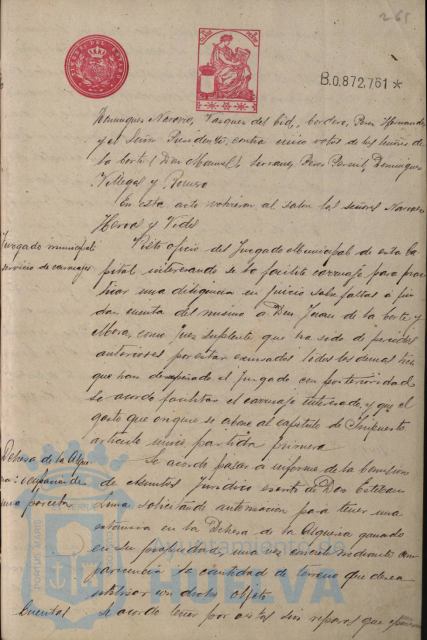 265
B.0.872,761*
Dominguez Navarro, Vazquez del Cid, Cordero, Perez Hernandez
y el Señor Presidente, contra cinco votos de los Señores de
la Corte (Don Manuel) Serrano, Perez Dominguez
Villegas y Romero
En este acto volvieron al salon los señores Navarro
Hervas y Vides
Juzgado municipal
servicio de carruajes
Visto oficio del Juzgado Municipal de esta Ca
pital interesando se le facilite carruaje para prac
ticar una diligencia en juicio sobre faltas
dan cuenta del mismo a Don Juan de la Corte y
Mora, como Juez suplente que ha sido de periodos
anteriores por estar escusados todos los demas
que han desempeñado el Juzgado con posterioridad
se acordó facilitar el carruaje interesado, y que el
gasto que origine se abone al capitulo de Impuestos
articulo unico partida primera
Dehesa de la Algue
una parcela
Se acordó pasar a informe de la Comision
de asuntos Juridicos escrito de Don Esteban
solicitando autorizacion para tener una
estancia en la Dehesa de la Alqueria ganado
en su propiedad, una vez concrete mediante com
parecencia la cantidad de terreno que desea
utilizar con dicho objeto
Cuentas
Se acordó tener por vistas sin reparos que
Ayuntamiento
HUELVA